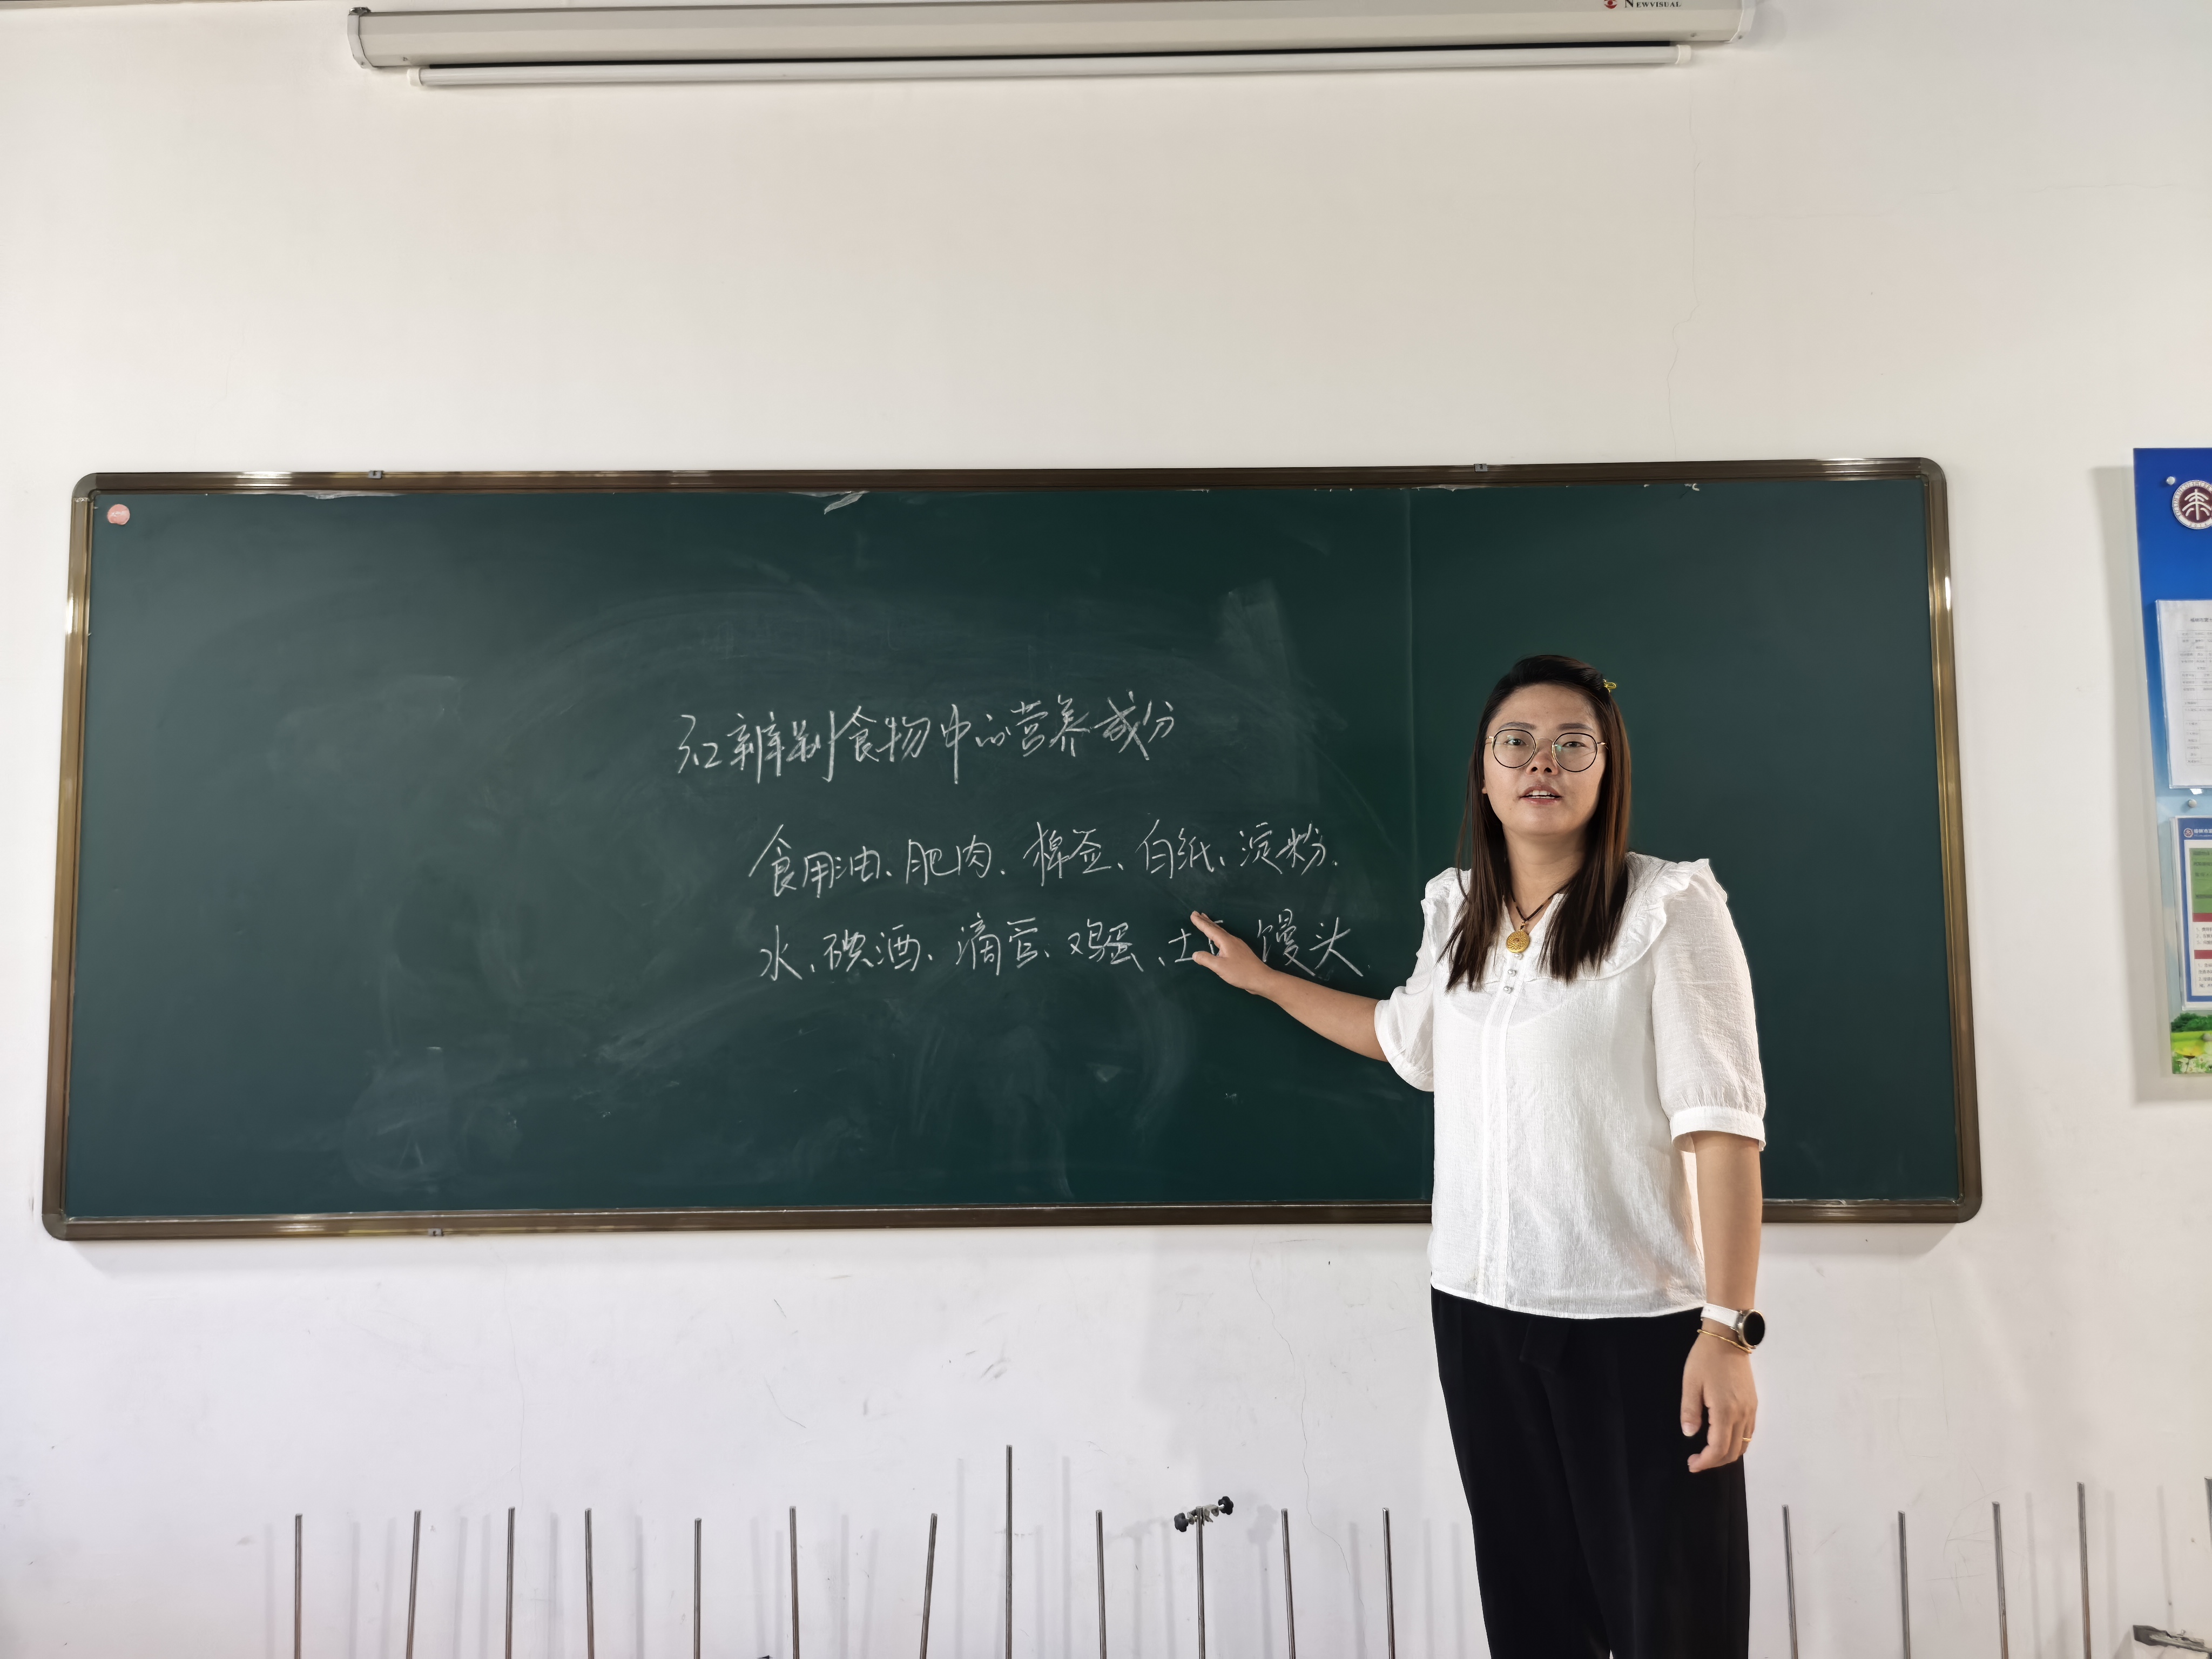 NEWVISUAL
辨别食物中的营养成分
食用油、肥肉、棉签、白纸、淀粉、
水、碘酒、滴管、鸡蛋、土 馒头